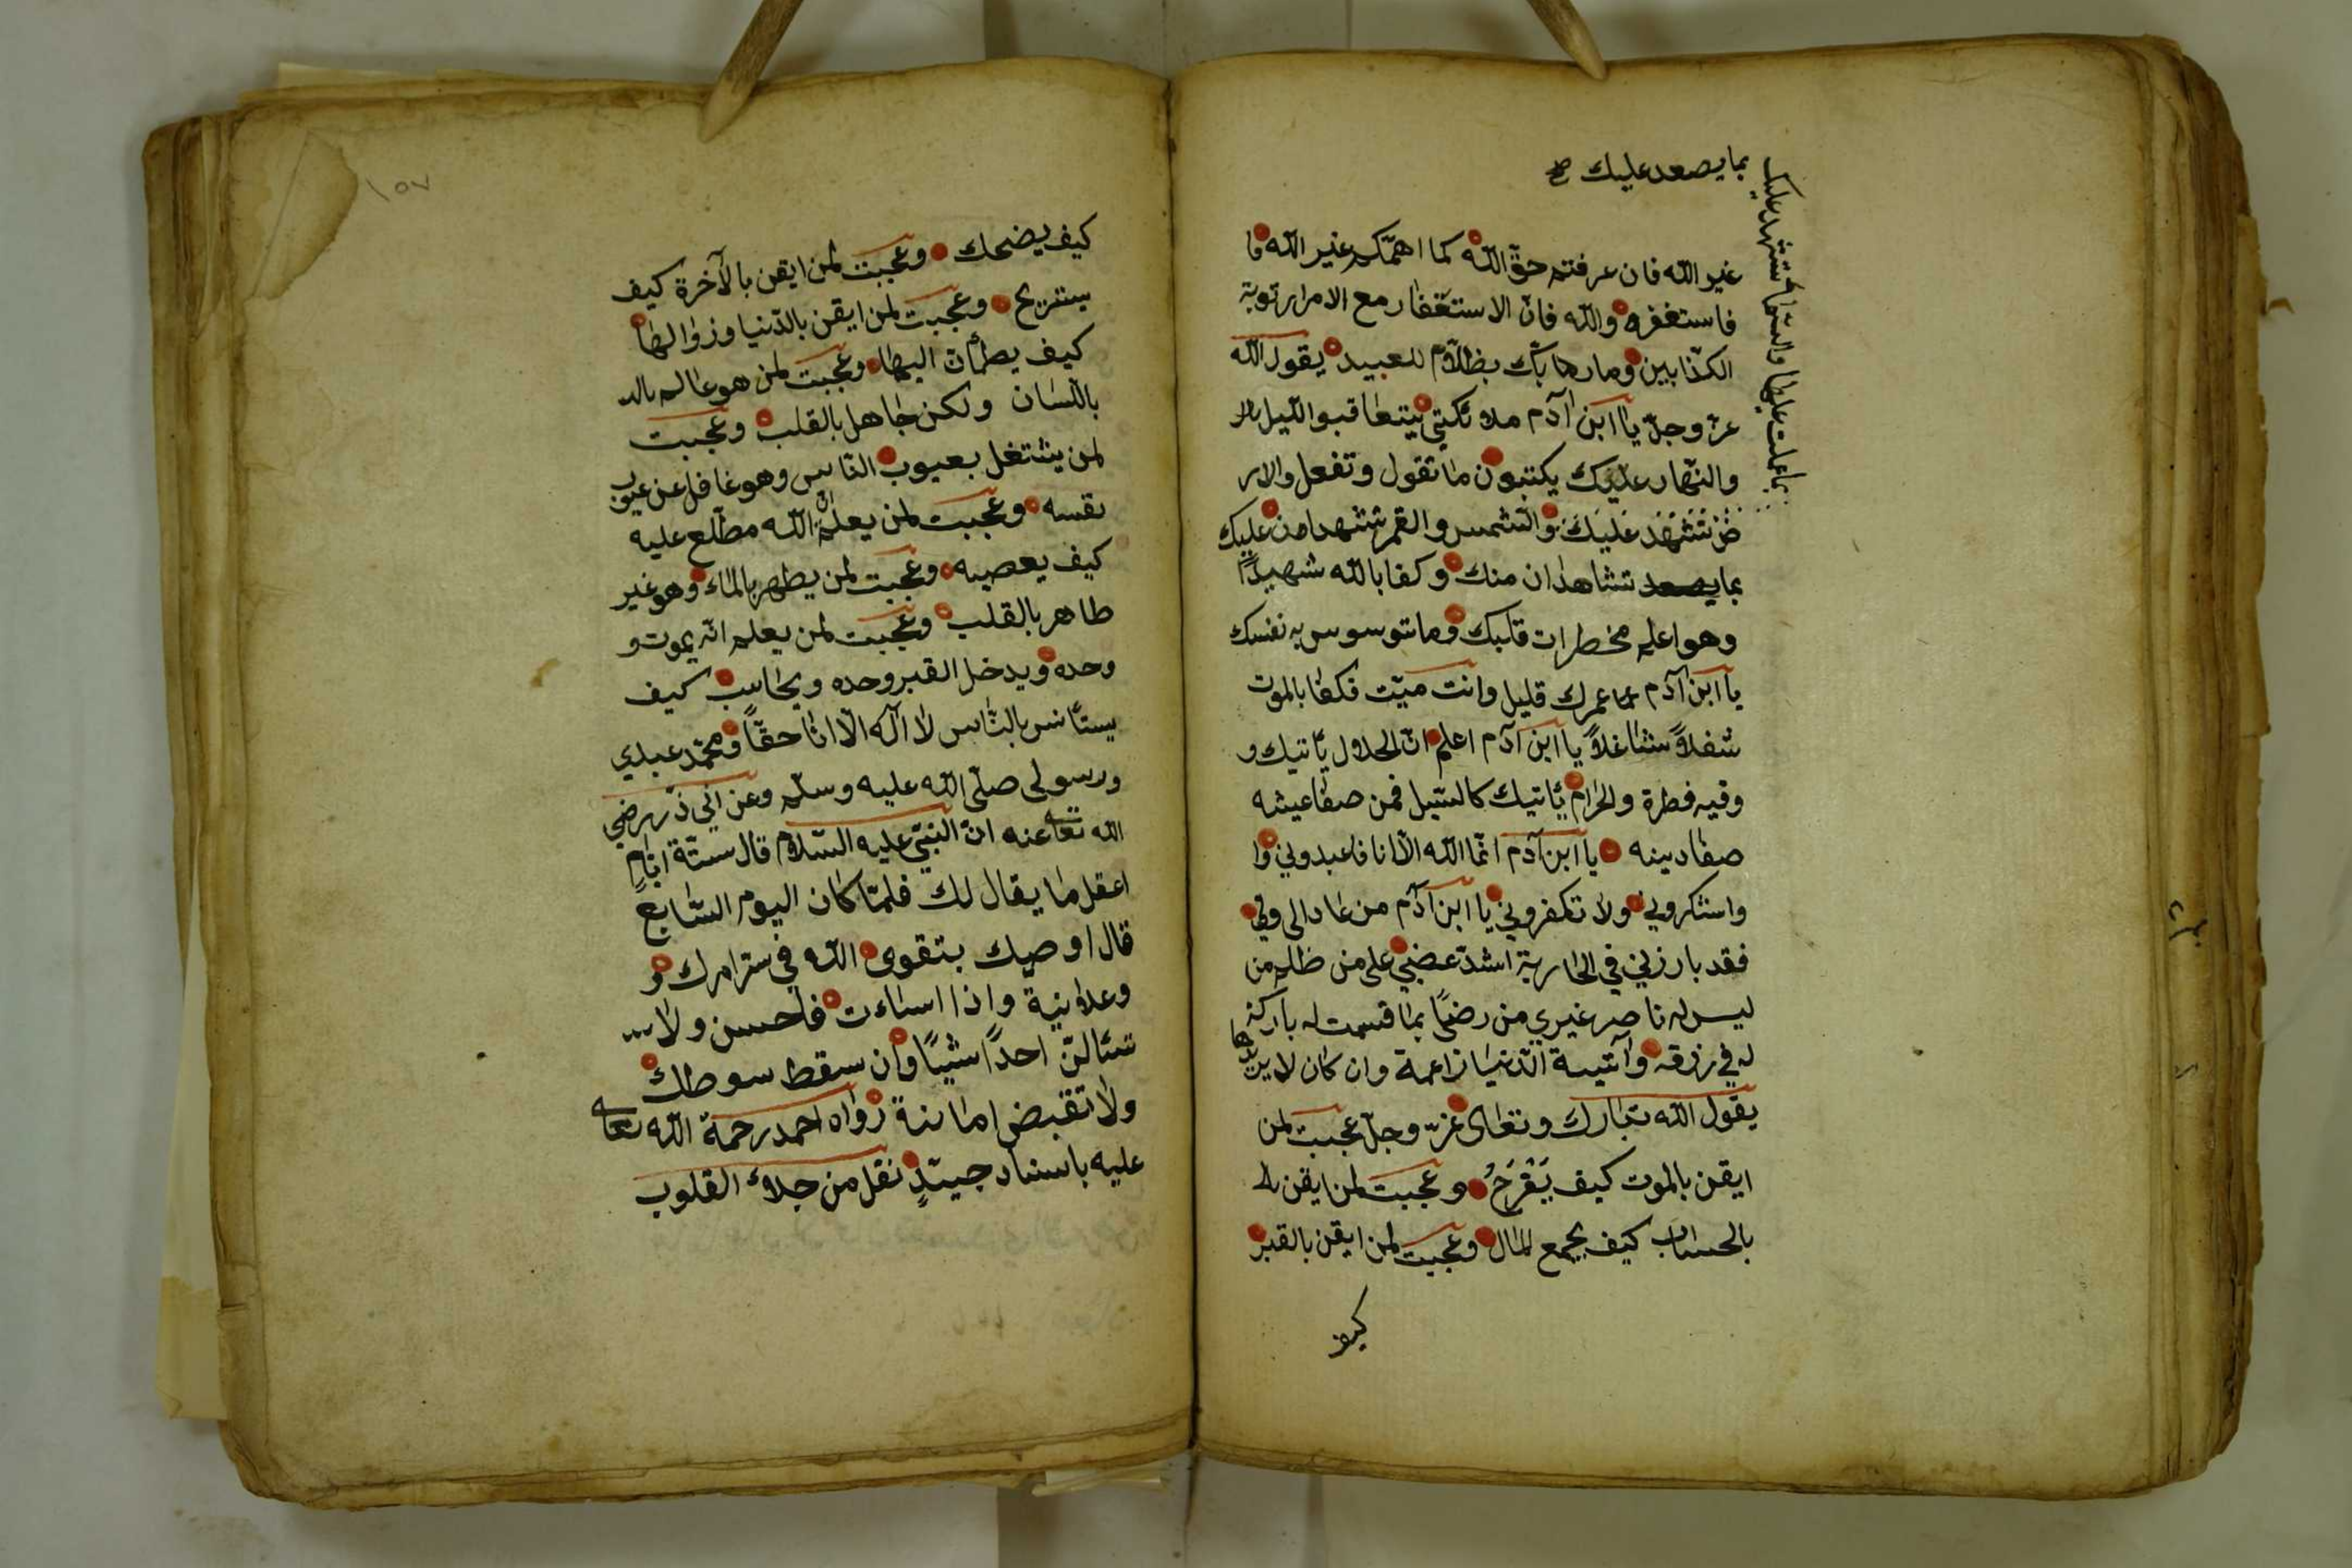 بما يصعد عليك صح
تشهد عليك والسماء
بما عملت عليها
غير الله فان عرفتم حقّ الله كما اهمّكم غير الله فا
فاستغفره والله فانّ الاستغفار مع الامرار توبة
الكذّابين وما ربّك بظلّام للعبيد يقول الله
عزّ وجلّ ياابن اٰدم ملائكتي يتعاقبوا الليل
والنّهار عليك يكتبون ما تقول وتفعل والار
ض تَشْهَد عَلَيكَ والشّمس والقمر تشهدا من عليك
بما يصعد تشاهدان منك وكفا بالله شهيدًا
وهو اعلم مخطرات قلبك وما توسوس به نفسك
ياابن اٰدم عمرك قليل وانت ميّت فكفا بالموت
شغلاً شاغلاً ياابن اٰدم اعلم انّ الحلال يأتيك و
وفيه فطرة والحرام يأتيك كالسّيل فمن صفا عيشه
صفا دينه ياابن اٰدم انّما الله الاّ انا فاعبدوني وا
واشكروني ولا تكفروني ياابن اٰدم من عادالى وفي
فقد بارزني في الحاربة اشدّ غضبي على من ظلم من
ليس له ناصر غيري من رضىً بما قسمت له باركته
له في رزقه وآتيه الدّنيا زاعمة وان كان لا يريدها
يقول الله تبارك وتعالى عزّ وجلّ عجبت لمن
ايقن بالموت كيف يَفْرَحُ وعجبت لمن ايقن با
بالحساب كيف يجمع المال وعجبت لمن ايقن بالقبر
كيف
١٥٧
كيف يضحك وعجبت لمن ايقن بالآخرة كيف
يستريح وعجبت لمن ايقن بالدّنيا وزوالها
كيف يطمأنّ اليها وعجبت لمن هو عالم بالـ
باللّسان ولكن جاهل بالقلب وعجبت
لمن يشتغل بعيوب النّاس وهو غافل عن عيوب
نفسه وعجبت لمن يعلم انّ الله مطّلع عليه
كيف يعصيه وعجبت لمن يطهر بالماء وهو غير
طاهر بالقلب وعجبت لمن يعلم انّه يموت و
وحده ويدخل القبر وحده ويحاسب كيف
يستأنس بالنّاس لا اله الاّ انا حقّاً ومحمّد عبدي
ورسولي صلّى الله عليه وسلّم وعن ابي ذرّ رضي
الله تعا عنه انّ النبيّ عليه السّلام قال ستّة ايّام
اعقل ما يقال لك فلمّا كان اليوم السّابع
قال اوصيك بتقوى الله في ستر امرك و
وعلانية واذا اساءت فاحسن ولا تسـ
تسئالنّ احداً شيئًا وان سقط سوطك
ولا تقبض امانةً رواه احمد رحمة الله تعا
عليه باسناد جيّدٍ نقل من جلاء القلوب